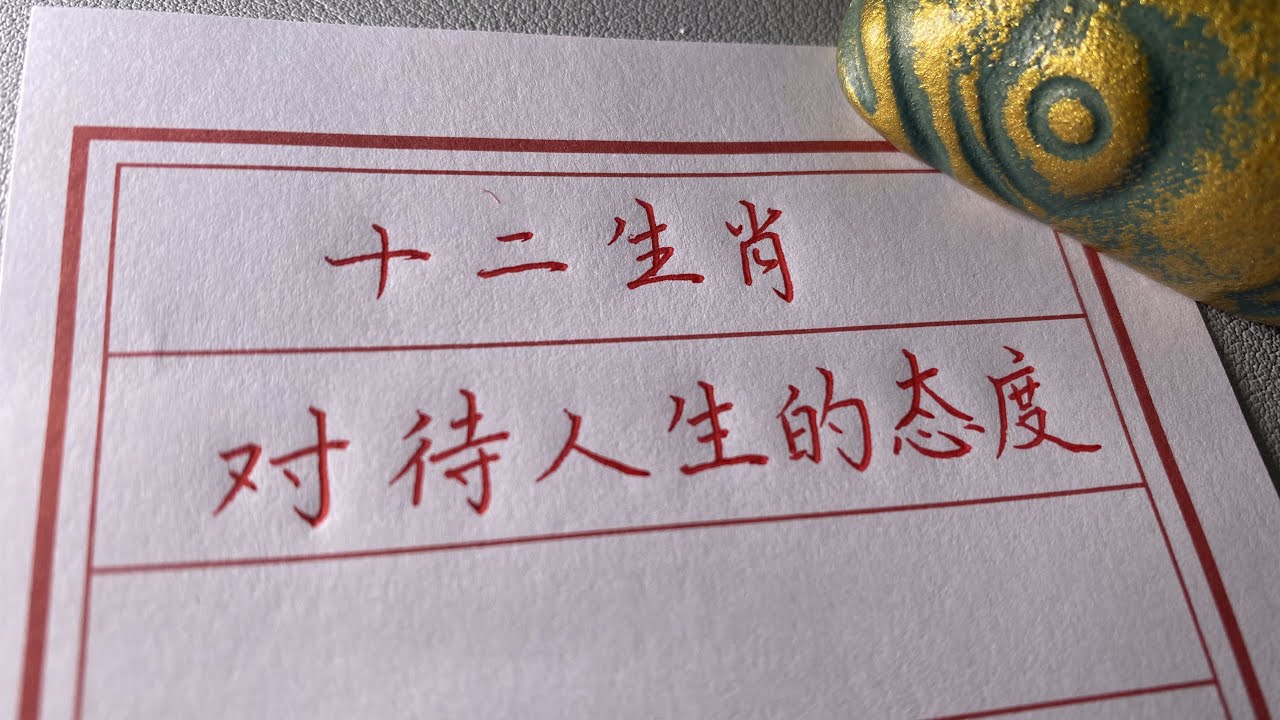 十二生肖
对待人生的态度